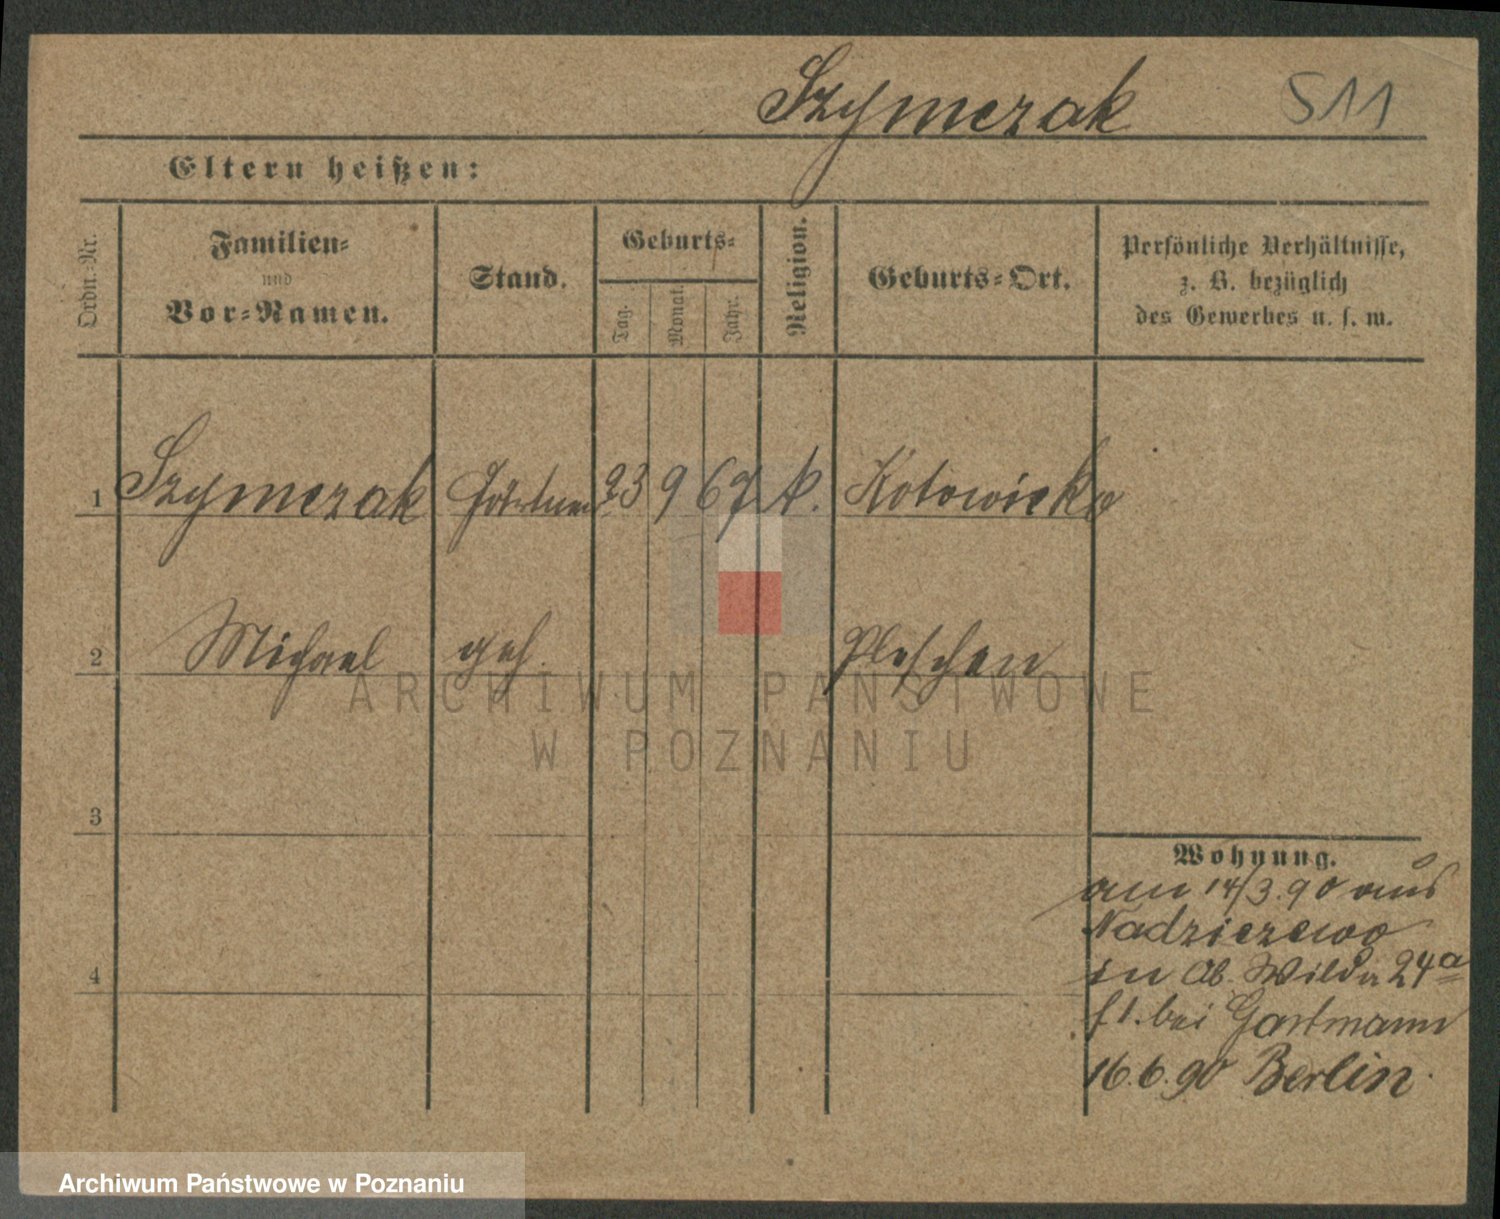 Szymczak 511
Eltern heißen:
Ordn.-Nr.
Familien-
und
Vor-Namen.
Stand.
Geburts-
Tag.
Monat.
Jahr.
Religion.
Geburts-Ort.
Persönliche Verhältnisse,
z. B. bezüglich
des Gewerbes u. s. w.
1 Szymczak Gärtner 23 9 67 k. Kotowiecko
2 Michael geh. Pleschen
ARCHIWUM PAŃSTWOWE
W POZNANIU
3
4
Wohnung.
am 14/3.90 aus
Nadziezewo
in Ob. Wilda 24a
bei Gartmann
16.6.90 Berlin.
Archiwum Państwowe w Poznaniu